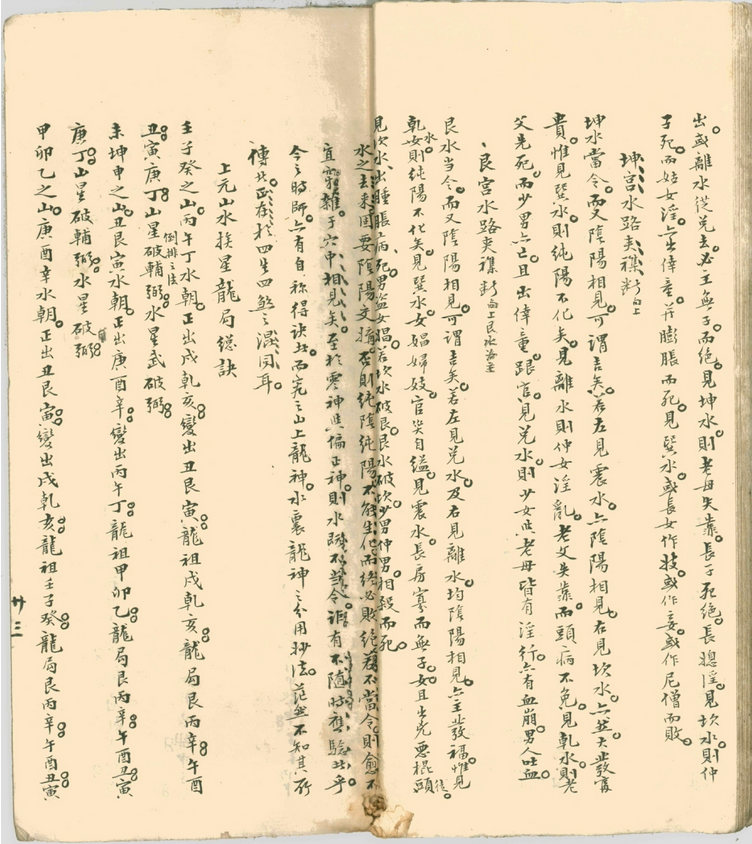 出或離水從兌去必主無子而絕見坤水則老母失靠長子死絕長媳淫見坎水則仲
子死而姑女淫亦出倖童並膨脹而死見巽水或長女作技或作妾或作尼僧而敗
坤宮水路夾襍断向上
坤水當令而又陰陽相見可謂吉矣若左見震水亦陰陽相見右見坎水亦然大發富
貴惟見巽水則純陽不化矣見離水則仲女淫亂老父失靠而頭病不免見乾水則老
父先死而少男亦亡且出倖童跟官見兌水則少女與老母皆有淫行亦有血崩男人吐血
艮宮水路夾襍断向上艮水為主
艮水當令而又陰陽相見可謂吉矣若左見兌水及右見離水均陰陽相見亦主發福惟見
乾水則純陽不化矣見巽水女娼婦妓官災自縊見震水長房寡而無子女且出兇惡棍頭後
見坎水出腫脹病死男盜女娼若坎水破艮艮水破坎少男仲男相殺而死
水之去來因要陰陽交搆否則純陰純陽不能生化而終必敗絕若不當令則愈不
宜䨇雜于穴中相見矣至於零神與偏正神則水路不當令訴有不隨時應驗此乎
今之時師亦有自称得訣此而究之山上龍神水裏龍神之分用玅法茫然不知其所
傳此正存於四生四煞之濕風耳
上元山水挨星龍局總訣
壬子癸之山丙午丁水朝正出戌乾亥變出丑艮寅龍祖戌乾亥龍局艮丙辛午酉
倒排之法
丑寅庚丁山星破輔弼水星武破弼
未坤申之山丑艮寅水朝正出庚酉辛變出丙午丁龍祖甲卯乙龍局艮丙辛午酉丑寅
庚丁山星破輔弼水星破輔弼
甲卯乙之山庚酉辛水朝正出丑艮寅變出戌乾亥龍祖壬子癸龍局艮丙辛午酉丑寅
卅三